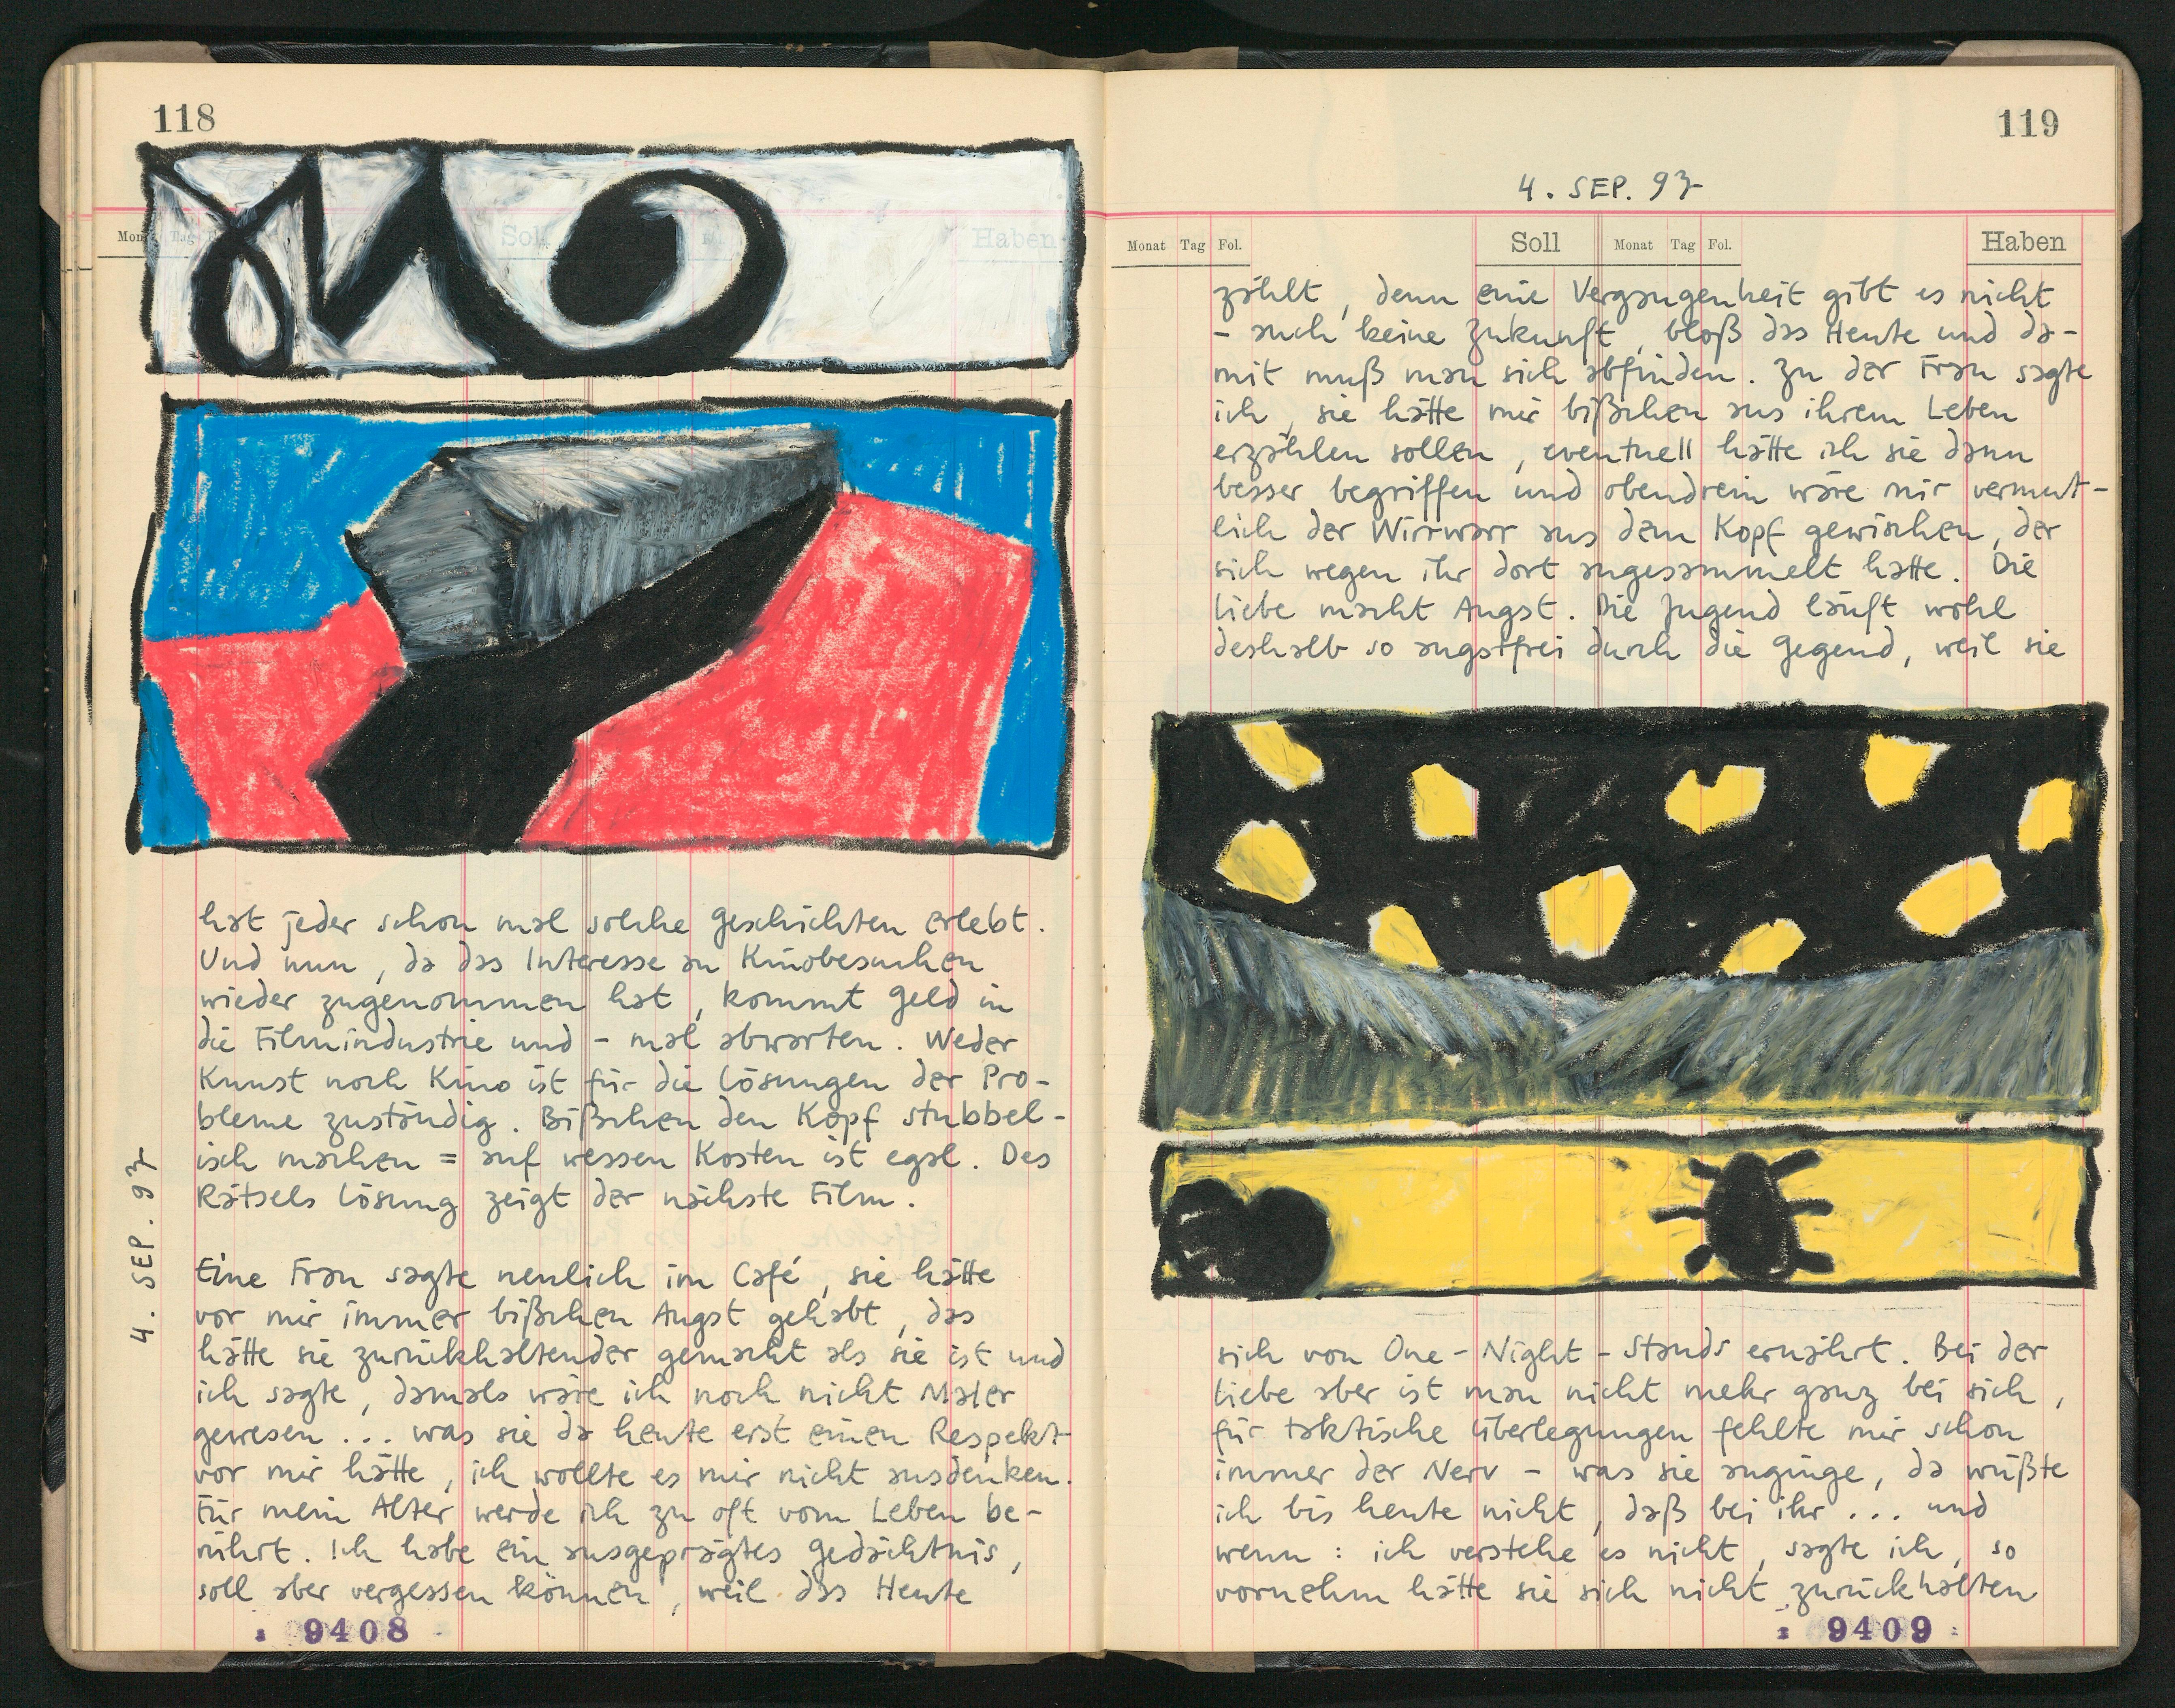 118
Mon Tag
Soll
Haben
hat jeder schon mal solche Geschichten erlebt.
Und nun, da das Interesse an Kinobesuchen
wieder zugenommen hat, kommt Geld in
die Filmindustrie und - mal abwarten. Weder
Kunst noch Kino ist für die Lösungen der Pro-
bleme zuständig. Bißchen den Kopf stubbel-
isch machen = auf wessen Kosten ist egal. Des
Rätsels Lösung zeigt der nächste Film.
4. SEP. 97
Eine Frau sagte neulich im Café, sie hätte
vor mir immer bißchen Angst gehabt, das
hätte sie zurückhaltender gemacht als sie ist und
ich sagte, damals wäre ich noch nicht Maler
gewesen ... was sie da heute erst einen Respekt
vor mir hätte, ich wollte es mir nicht ausdenken.
Für mein Alter werde ich zu oft vom Leben be-
rührt. Ich habe ein ausgeprägtes Gedächtnis,
soll aber vergessen können, weil das Heute
9408
119
4. SEP. 97
Monat Tag Fol. Soll Monat Tag Fol. Haben
zählt, denn eine Vergangenheit gibt es nicht
- auch keine Zukunft, bloß das Heute und da-
mit muß man sich abfinden. Zu der Frau sagte
ich, sie hätte mir bißchen aus ihrem Leben
erzählen sollen, eventuell hätte ich sie dann
besser begriffen und obendrein wäre mir vermut-
lich der Wirrwarr aus dem Kopf gewichen, der
sich wegen ihr dort angesammelt hatte. Die
Liebe macht Angst. Die Jugend läuft wohl
deshalb so angstfrei durch die Gegend, weil sie
sich von One-Night-Stands ernährt. Bei der
Liebe aber ist man nicht mehr ganz bei sich,
für taktische Überlegungen fehlte mir schon
immer der Nerv - was sie anginge, da wüßte
ich bis heute nicht, daß bei ihr ... und
wenn: ich verstehe es nicht, sagte ich, so
vornehm hätte sie sich nicht zurückhalten
9409